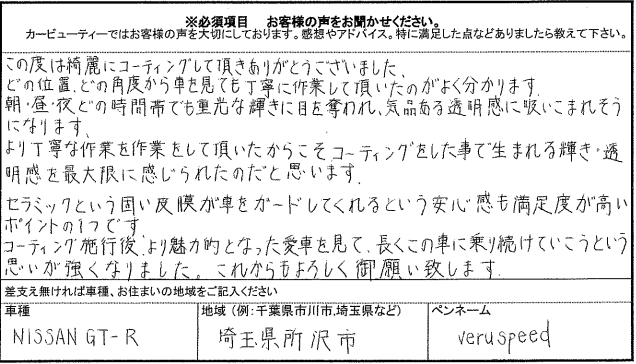 ※必須項目　お客様の声をお聞かせください。
カービューティーではお客様の声を大切にしております。感想やアドバイス。特に満足した点などありましたら教えて下さい。
この度は綺麗にコーティングして頂きありがとうございました。
どの位置、どの角度から車を見ても丁寧に作業して頂いたのがよく分かります。
朝・昼・夜どの時間帯でも重光な輝きに目を奪われ、気品ある透明感に吸いこまれそう
になります。
より丁寧な作業を作業をして頂いたからこそコーティングをした事で生まれる輝き・透
明感を最大限に感じられたのだと思います。
セラミックという固い皮膜が車をガードしてくれるという安心感も満足度が高い
ポイントの1つです。
コーティング施行後、より魅力的となった愛車を見て、長くこの車に乗り続けていこうという
思いが強くなりました。これからもよろしく御願い致します。
差支え無ければ車種、お住まいの地域をご記入ください
車種
地域（例：千葉県市川市,埼玉県など）
ペンネーム
NISSAN GT-R
埼玉県所沢市
veruspeed